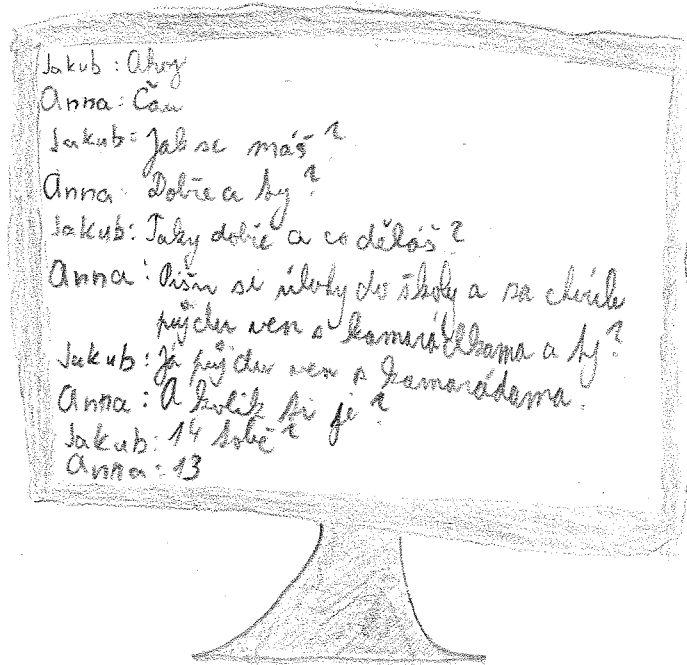 Jakub: Ahoj
Anna: Čau
Jakub: Jak se máš?
Anna: Dobře a ty?
Jakub: Taky dobře a co děláš?
Anna: Píšu si úlohy do školy a za chvíli
půjdu ven s kamarádkama a ty?
Jakub: Já půjdu ven s kamarádama.
Anna: A kolik ti je?
Jakub: 14 tobě?
Anna: 13